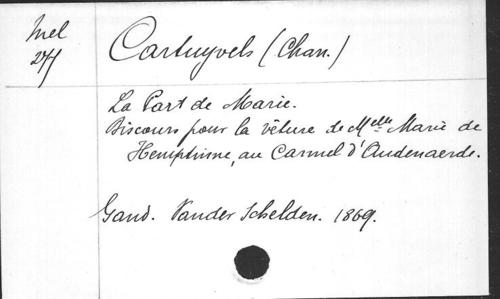 Mel
Cartuyvels (Chan.)
La Part de Marie.
Discours pour la vêture de Melle Marie de
Hemptinne, au Carmel d'Audenaerde.
Gand. Vander Schelden. 1869.